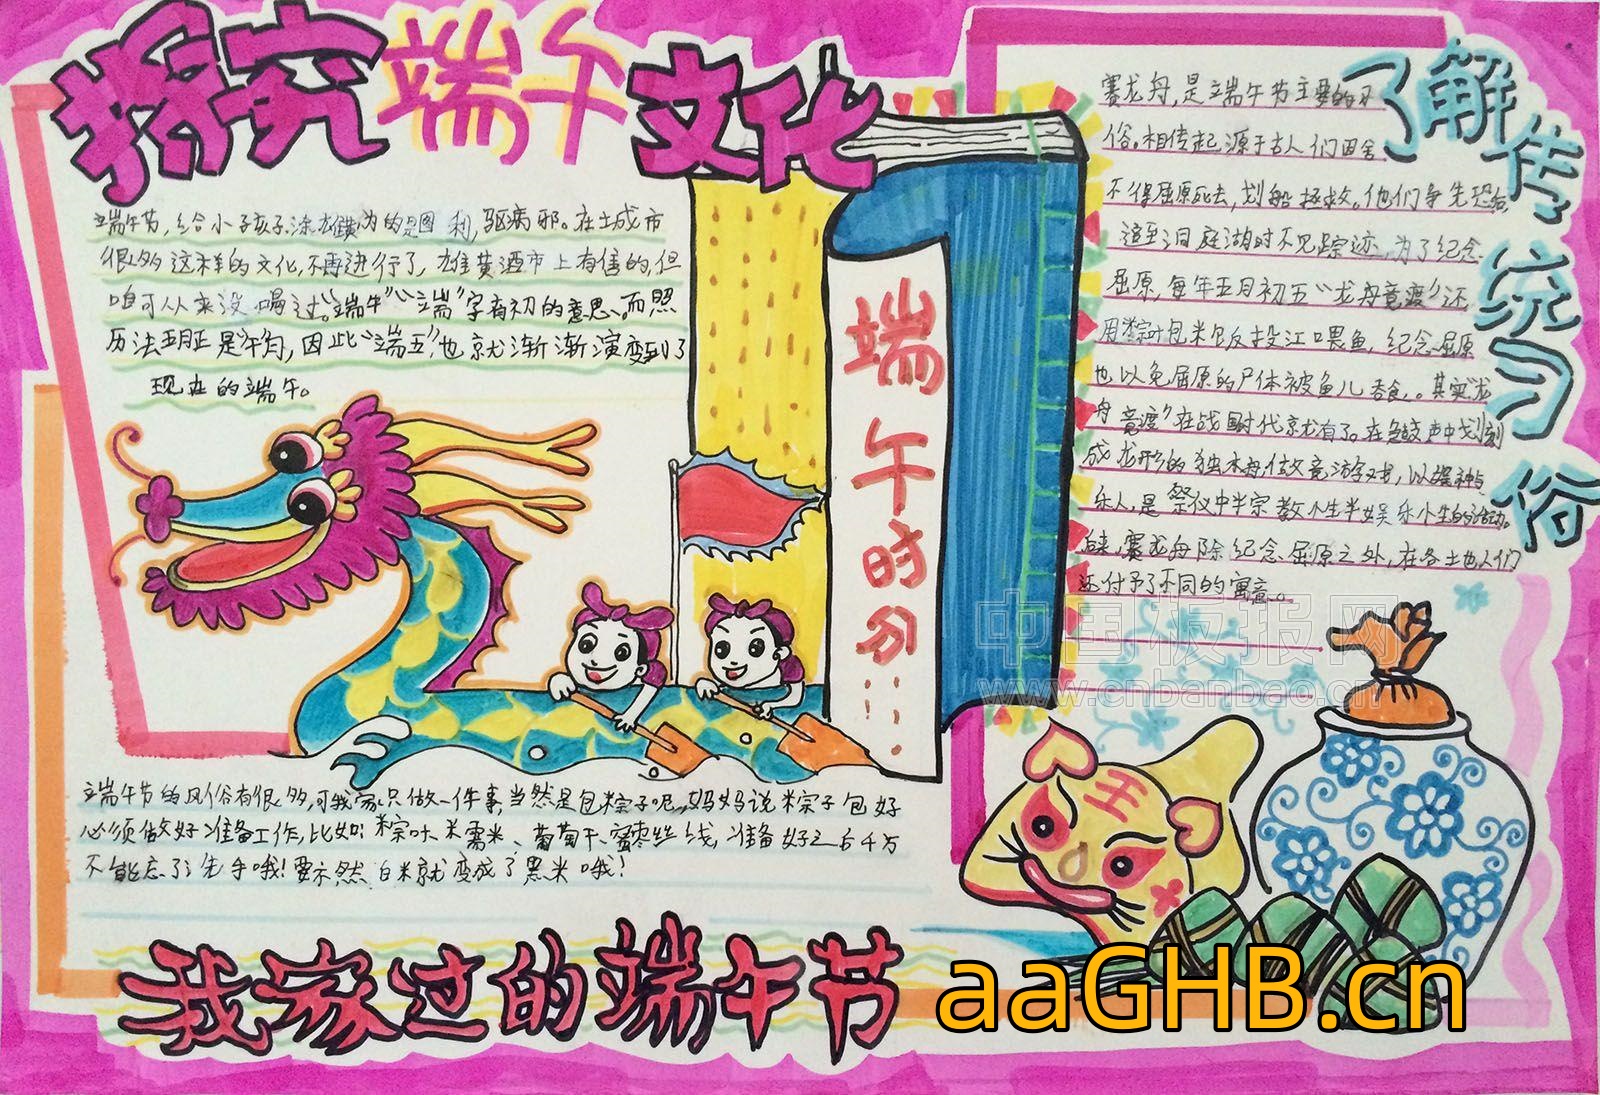 探究端午文化
端午节,给小孩子涂雄黄为的是图利,驱病邪。在土城市
很多这样的文化,不再进行了,雄黄酒市上有售的,但
咱可从来没喝过。“端午”“端”字有初的意思、而照
历法五月正是“午”月,因此“端五”也就渐渐演变到了
现在的端午。
端午时分……
了解传统习俗
赛龙舟,是端午节主要的习
俗。相传起源于古人们因舍
不得屈原死去,划船拯救。他们争先恐后,
追至洞庭湖时不见踪迹,为了纪念
屈原,每年五月初五“龙舟竟渡”还
用粽叶包米饭投江喂鱼,纪念屈原
也以免屈原的尸体被鱼儿吞食,。其实“龙
舟竟渡”在战国时代就有了。在鼓声中划刻
成龙形的独木舟做竞渡游戏,以娱神与
乐人,是祭仪中半宗教小生半娱乐小生的活动。
后来,赛龙舟除纪念屈原之外,在各土也人们
还付予了不同的寓意。
中国板报网
www.cnbanbao.cn
王
端午节的风俗有很多,可我家只做一件事,当然是包粽子呢,妈妈说粽子包好
必须做好准备工作,比如:粽叶、米需米、葡萄干、蜜枣丝线,准备好之后千万
不能忘了:先手哦!要不然白米就变成了黑米哦!
我家过的端午节
aaGHB.cn